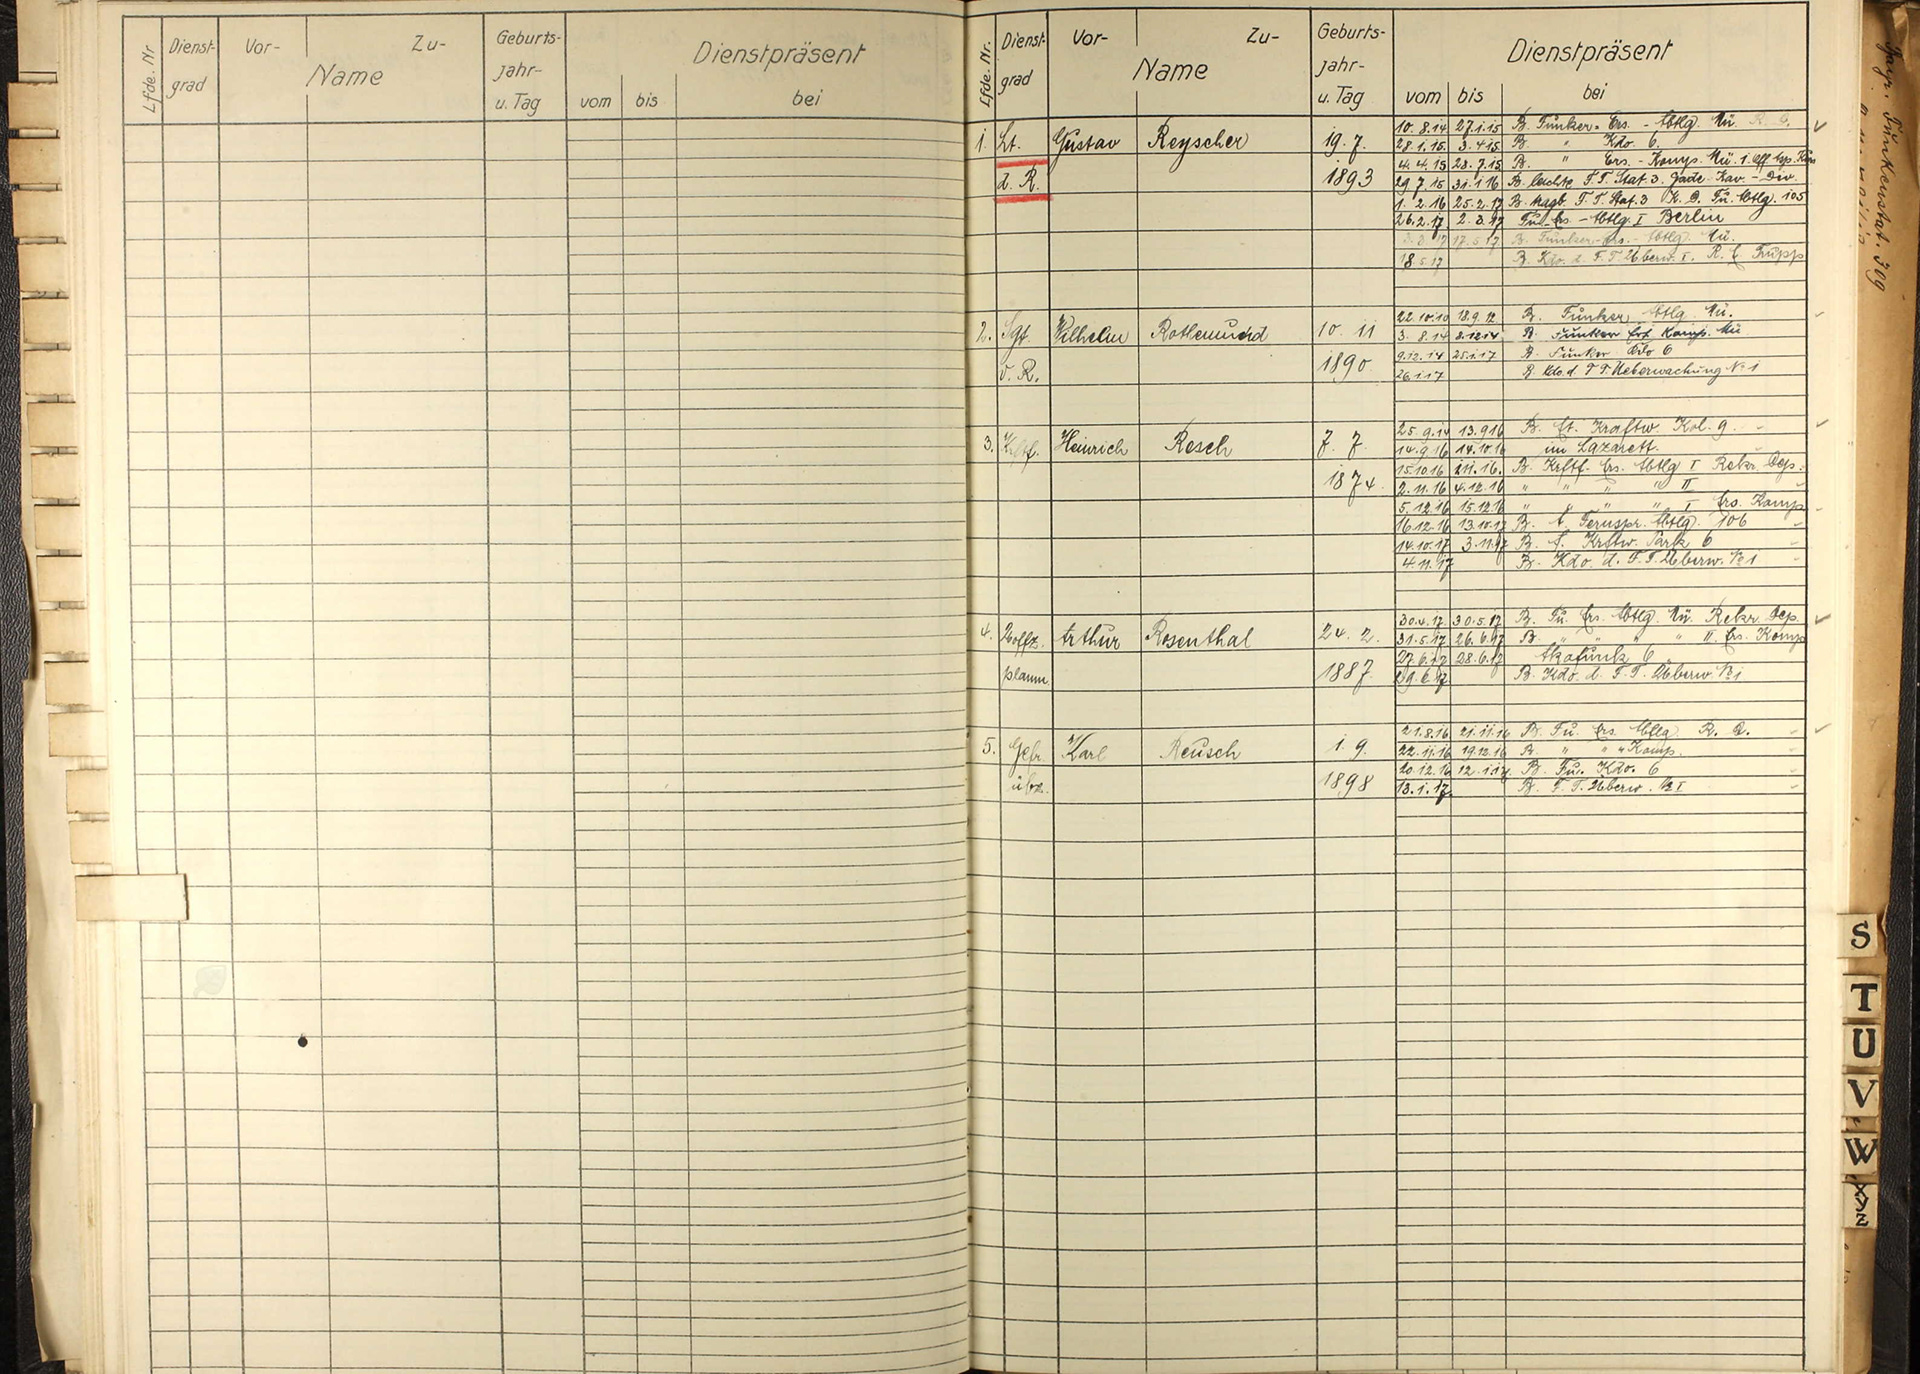 Lfde. Nr Dienst- grad Vor- Zu- Name Geburts- Jahr- u. Tag Dienstpräsent vom bis bei
Lfde. Nr. Dienst- grad Vor- Zu- Name Geburts- Jahr- u. Tag Dienstpräsent vom bis bei
1. Lt. d. R. Gustav Reyscher 19. 7. 1893
10. 8. 14 27.1.15 B. Funker- Ers. - Abtlg. Mü. R. D.
28.1.15. 3.4.15 B. " Kdo. 6.
4.4.15 28.7.15 B. " Ers. - Komp. Mü. 1. Off. Asp.
29.7.15 31.1.16 B. leichte F.T. Stat. 3. Garde- Kav. - Div.
1.2.16 25.2.17 B. F.T. Stat. 3 K. D. Fu. Abtlg. 105
26.2.17. 2.3.17 Fu. Ers - Abtlg. I Berlin
3.3.17 17.5.17 B. Funker- Ers. - Abtlg. Mü.
18.5.17 B. Kdo. d. F.T. Überw. I.
2. Sgt. d. R. Wilhelm Rothemund 10. 11 1890
22.10.10 18.9.12 B. Funker Abtlg. Mü.
3. 8.14 8.12.14 B. Funker Ers. Komp. Mü
9.12.14 25.1.17 B. Funker Kdo 6
26.1.17 B. Kdo. d. F T. Ueberwachung No 1
3. Krftf. Heinrich Resch 7. 7. 1874
25.9.14 13.9.16 B. Et. Kraftw. Kol. 9.
14.9.16 14.10.16 im Lazarett.
15.10.16 2.11.16. B. Krftf. Ers. Abtlg I Rekr. Dep.
2.11.16 4.12.16 " " " " II "
5.12.16 15.12.16 " " " " I Ers. Komp
16.12.16 13.10.17 B. A. Fernspr. Abtlg. 106
14.10.17 3.11.17 B. A. Krftw. Park 6
4.11.17 B. Kdo. d. F.T. Überw. No 1
4. Uoffz. Arthur Rosenthal 24. 2. 1887.
30.4.17 30.5.17 B. Fu. Ers. Abtlg. Mü. Rekr. Dep.
31.5.17 26.6.17 B. " " " " II. Ers. Komp
27.6.17 28.6.17 Akofunk 6
29.6.17 B. Kdo. d. F.T. Überw. No 1
5. Gefr. Karl Reusch 1. 9. 1898
21.8.16 21.11.16 B. Fu. Ers. Abtlg R. D.
22.11.16 19.12.16 B. " " " Komp.
20.12.16 12.1.17 B. Fu. Kdo. 6
13.1.17. B. F.T. Überw. No I
Bayr. Funkenstat. 309
S
T
U
V
W
XYZ